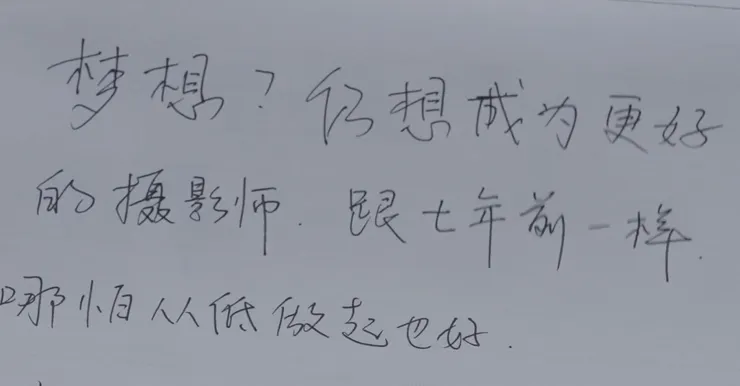 梦想？仍想成为更好
的摄影师. 跟七年前一样.
哪怕从低做起也好.